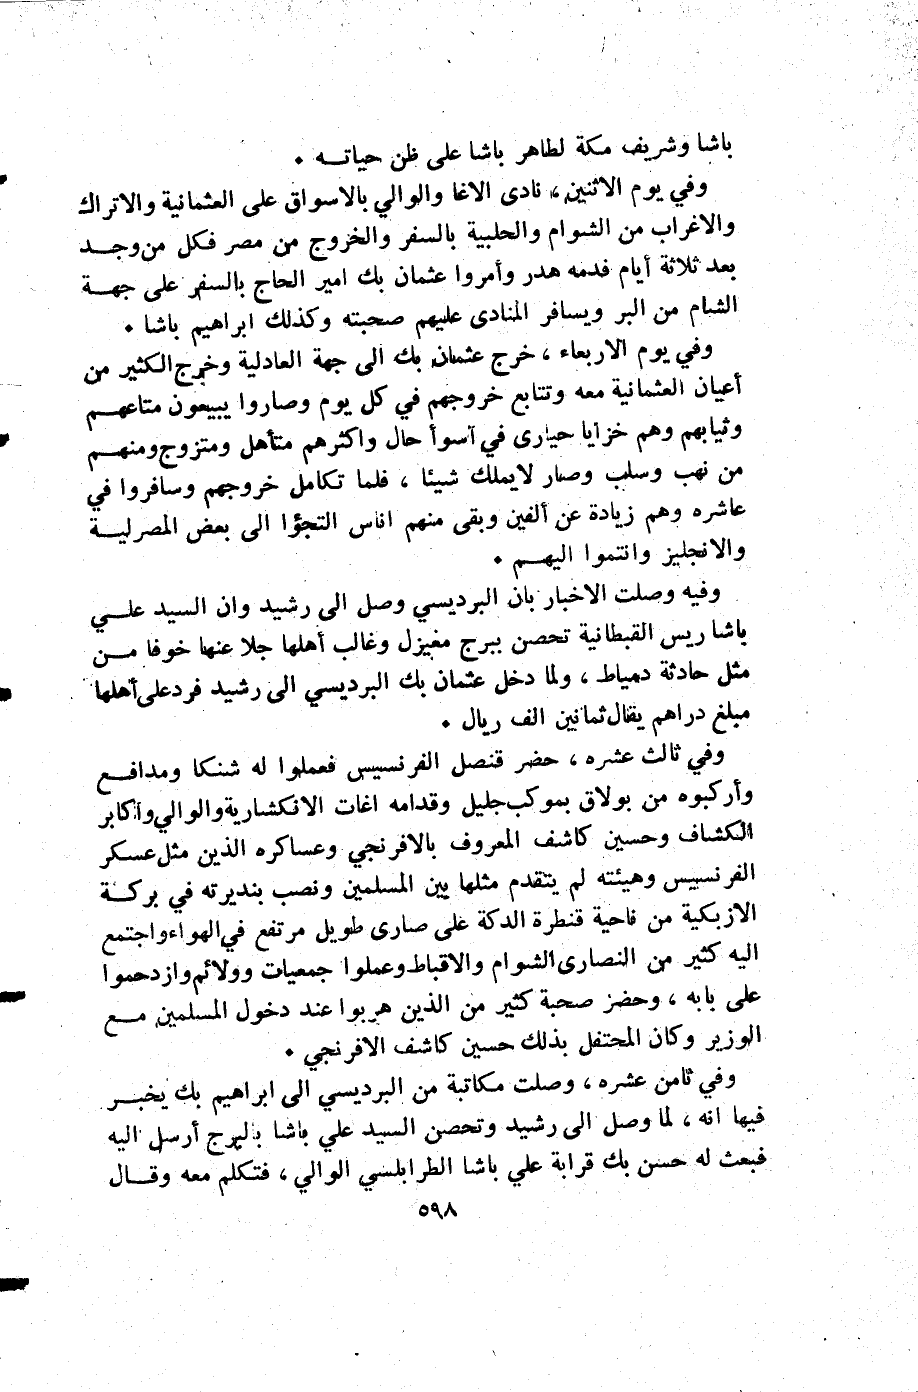 باشا وشريف مكة لطاهر باشا على ظن حياتــه .
وفي يوم الاثنين ، نادى الاغا والوالي بالاسواق على العثمانية والاتراك
والاغراب من الشوام والحلبية بالسفر والخروج من مصر فكل من وجــد
بعد ثلاثة أيام فدمه هدر وأمروا عثمان بك امير الحاج بالسفر على جهــة
الشام من البر ويسافر المنادى عليهم صحبته وكذلك ابراهيم باشا .
وفي يوم الاربعاء ، خرج عثمان بك الى جهة العادلية وخرج الكثير من
أعيان العثمانية معه وتتابع خروجهم في كل يوم وصاروا يبيعون متاعهــم
وثيابهم وهم خزايا حيارى في أسوأ حال واكثرهم متأهل ومتزوج ومنهــم
من نهب وسلب وصار لايملك شيئا ، فلما تكامل خروجهم وسافروا في
عاشره وهم زيادة عن ألفين وبقى منهم اناس التجؤا الى بعض المصرليــة
والانجليز وانتموا اليهــم .
وفيه وصلت الاخبار بان البرديسي وصل الى رشيد وان السيد علــي
باشا ريس القبطانية تحصن ببرج مغيزل وغالب أهلها جلا عنها خوفا مــن
مثل حادثة دمياط ، ولما دخل عثمان بك البرديسي الى رشيد فرد على أهلها
مبلغ دراهم يقال ثمانين الف ريال .
وفي ثالث عشره ، حضر قنصل الفرنسيس فعملوا له شنكا ومدافــع
وأركبوه من بولاق بموكب جليل وقدامه اغات الانكشارية والوالي واكابر
الكشاف وحسين كاشف المعروف بالافرنجي وعساكره الذين مثل عسكر
الفرنسيس وهيئته لم يتقدم مثلها بين المسلمين ونصب بنديرته في بركــة
الازبكية من ناحية قنطرة الدكة على صارى طويل مرتفع في الهواء واجتمع
اليه كثير من النصارى الشوام والاقباط وعملوا جمعيات وولائم وازدحموا
على بابه ، وحضر صحبة كثير من الذين هربوا عند دخول المسلمين مــع
الوزير وكان المحتفل بذلك حسين كاشف الافرنجي .
وفي ثامن عشره ، وصلت مكاتبة من البرديسي الى ابراهيم بك يخبــر
فيها انه ، لما وصل الى رشيد وتحصن السيد علي باشا بالبرج أرسل اليه
فبعث له حسن بك قرابة علي باشا الطرابلسي الوالي ، فتكلم معه وقــال
٥٩٨